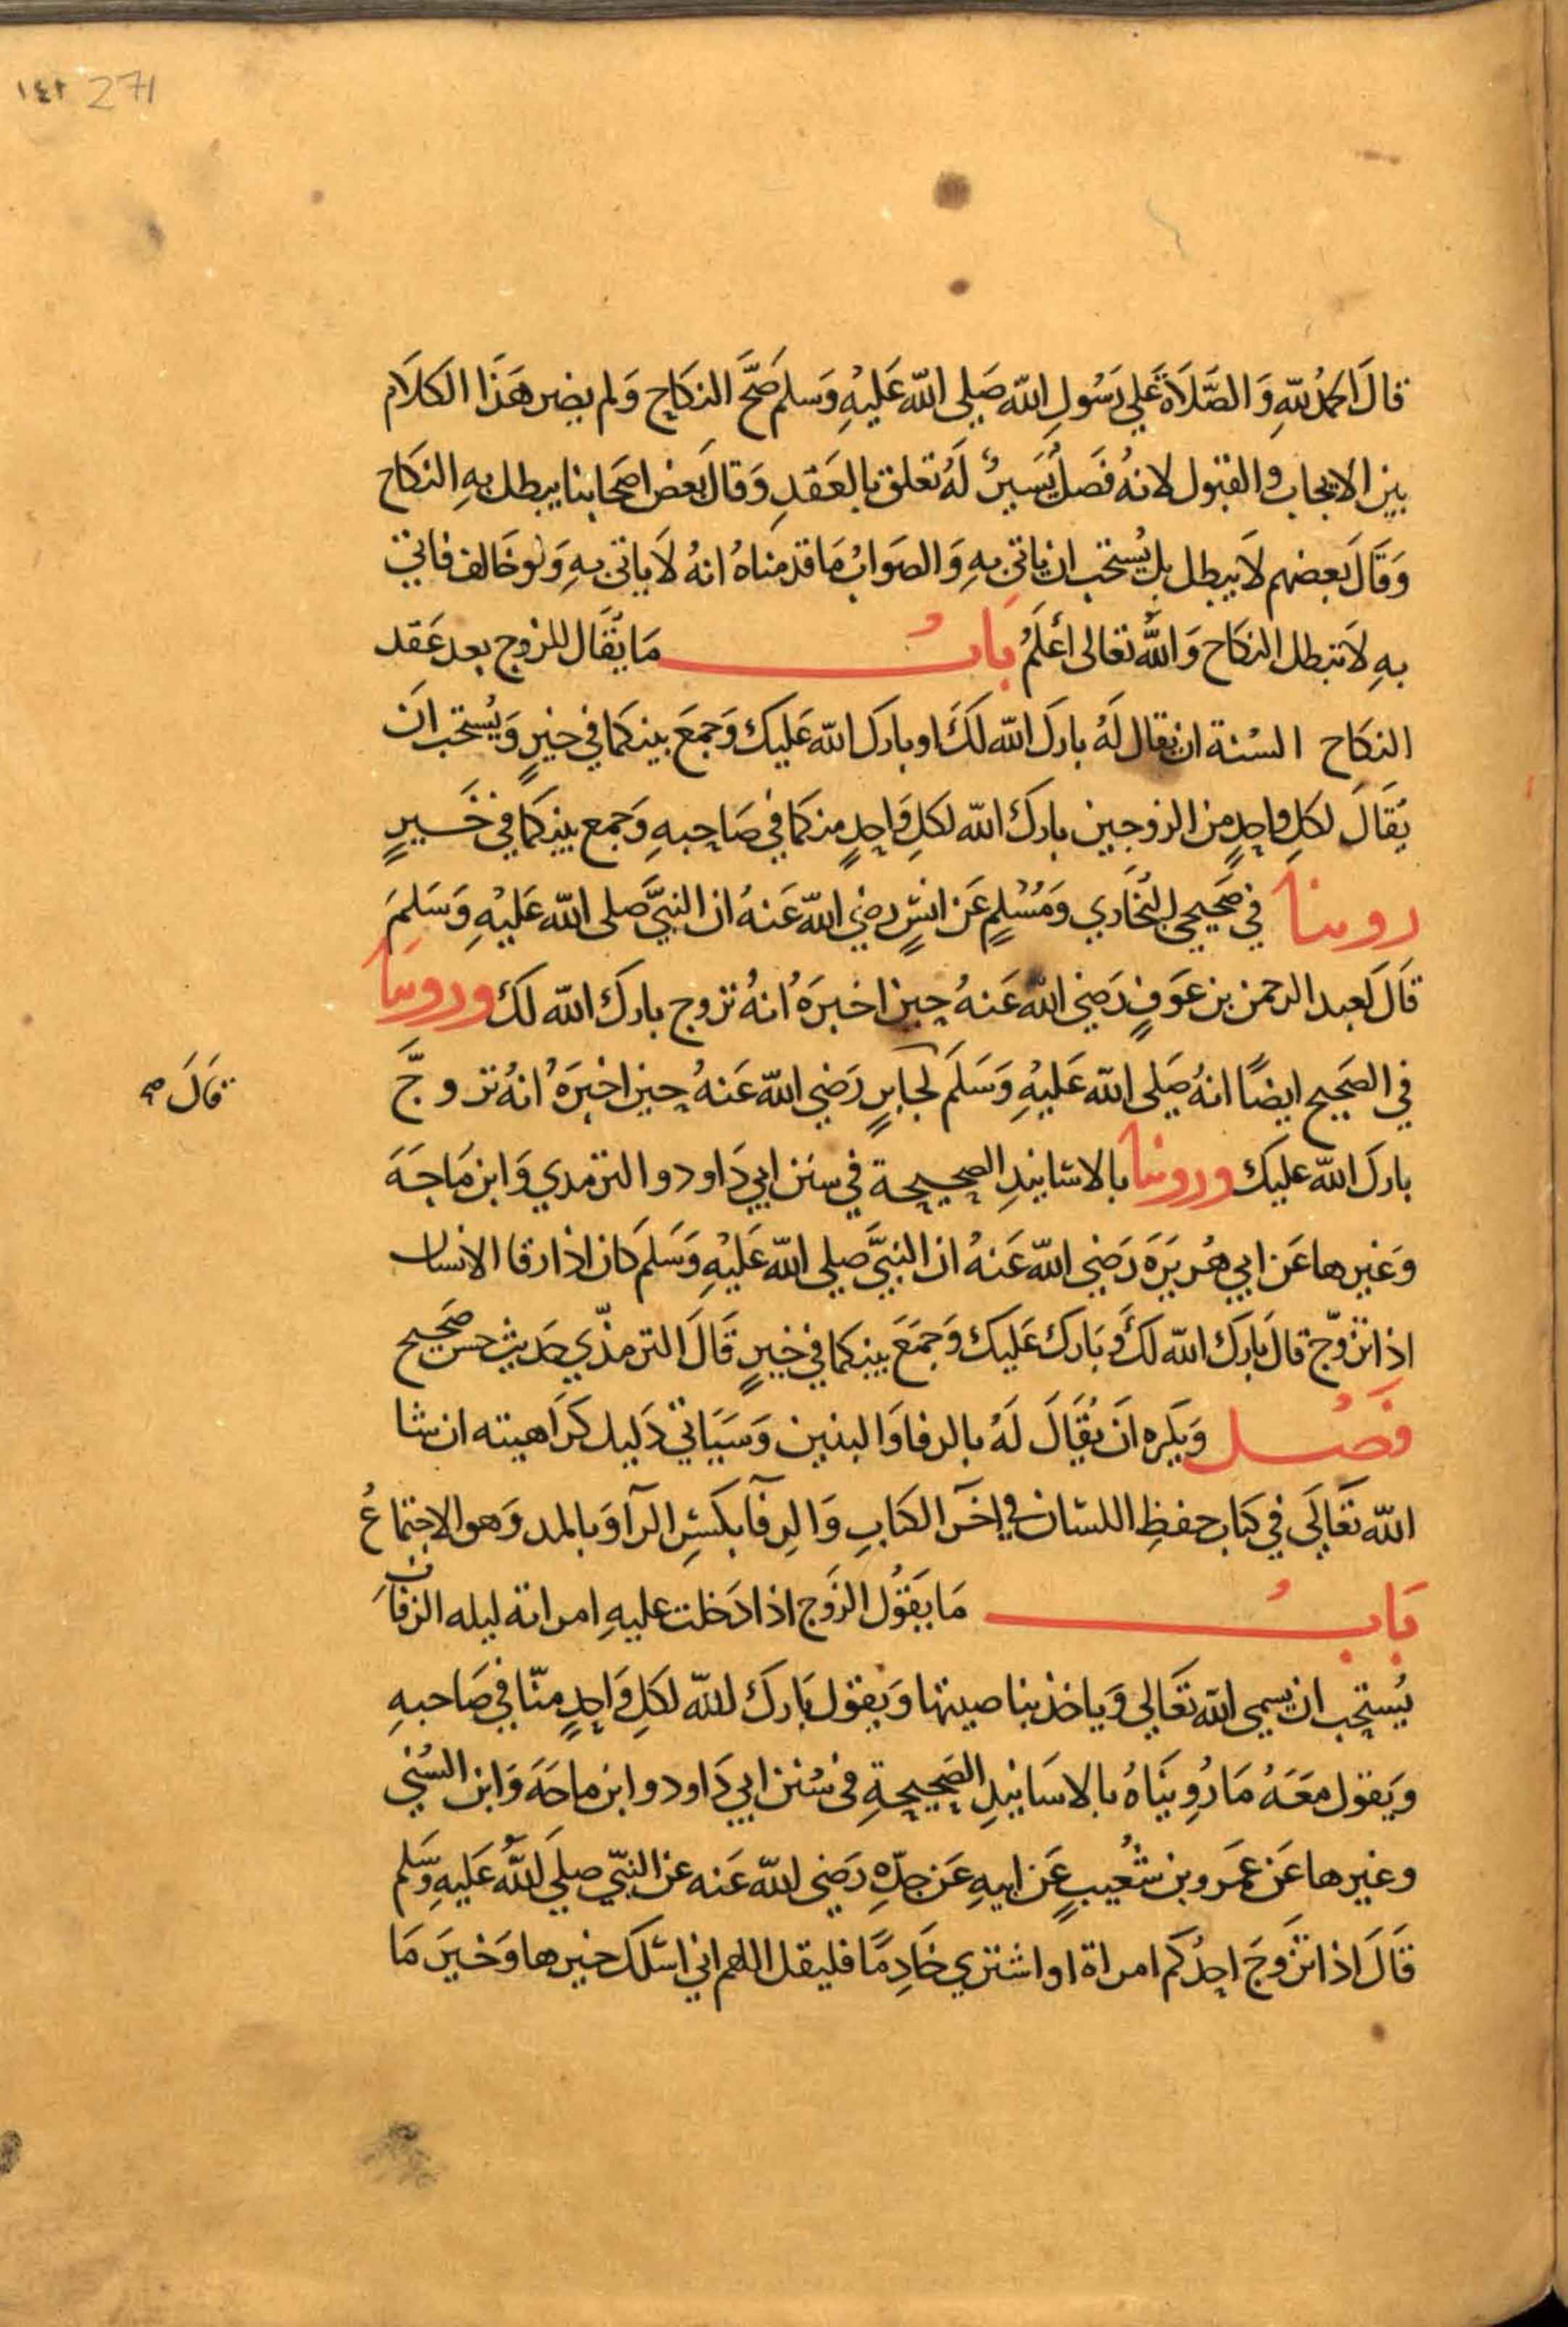 ١٤٢ 271
قالَ الحمدُ للّهِ وَالصَّلَاة عَلي رَسُولِ اللّه صَلي اللّه عَليْهِ وَسلم صَحَّ النكَاح وَلم يضر هَذا الكلَام
بين الايجاب والقبول لانهُ فَصلٌ يَسيرٌ لَهُ تعلق بالعَقدِ وَقالَ بَعض اصحَابنا يبطل بهِ النكاح
وَقَالَ بَعضهم لَا يبطل بل يُستحب ان ياتي بهِ وَالصَوابُ مَا قدمناهُ انهُ لَا ياتي بهِ وَلو خَالف فاتي
بهِ لَا تبطل النكاح وَاللّهُ تعَالى أعْلَمُ بَابُ مَا يُقَال للزوج بعد عَقد
النكاح السُنة ان يقال لَهُ بارَك اللّه لَكَ او بارَك اللّه عَليك وَجمَعَ بينكما في خيرٍ وَيُستحَب ان
يُقَالَ لكلِ واحدٍ من الزوجين بارَكَ اللّه لكلِ وَاحدٍ منكما في صَاحبهِ وَجمع بينكما في خَيرٍ
روينا في صَحيحي البُخَاري وَمُسْلمٍ عَن انسٍ رضي اللّه عَنهُ ان النبيَّ صَلى اللّه عَليْهِ وَسَلمَ
قَالَ لعبد الرحمن بن عَوفٍ رَضي اللّه عَنهُ حين اخبرَهُ انهُ تزوج بارَكَ اللّه لكَ وروينا
في الصَحيح ايضًا انهُ صَلى اللّه عَليْهِ وَسَلمَ لجابرٍ رَضي اللّه عَنهُ حين اخبرَهُ انهُ تزوجَّ
قَالَ صح
بارَكَ اللّه عليك وروينا بالاسَانيدِ الصحيحة في سنن ابي دَاود والترمدي وَابن مَاجَة
وَغيرها عَن ابي هُريرَة رَضي اللّه عَنهُ ان النبيَّ صلي اللّه عَليْهِ وَسَلم كان اذا رفا الانسان
اذا تزوّج قالَ بَارَكَ اللّه لكَ وَبَاركَ عَليك وَجمَعَ بينكما في خيرٍ قَالَ الترمذّي حَديث حسَن صحيح
فَصْل وَيكره انَ يُقَالَ لَهُ بالرفا وَالبنين وَسَيَاتي دَليل كرَاهيته ان شا
اللّه تعَالَى في كتاب حفظِ اللسَان في اخَر الكتابِ وَالرفآ بكسْرِ الرآ وَبالمد وَهو الاجتماعُ
بَابُ مَا يَقوُل الزَوج اذا دَخلت عليهِ امراته ليله الزفافَ
يُستحب ان يسمي اللّه تعَالي وَياخذ بناصيتها وَيقول بَارَك اللّه لكلِ وَاحدٍ منّا في صَاحبهِ
وَيَقول معَهُ مَا رُوِينَاهُ بالاسَانيدِ الصَحيحةِ في سُنن ابي دَاود وابن ماجَة وَابن السُني
وغيرها عَن عمَرو بن شعُيبٍ عَن ابيهِ عَن جدّهِ رَضي اللّه عَنه عن النبيّ صلي اللّهُ عَليهِ وَسَّلم
قَالَ اذا تزَوجَ احدُكم امراة او اشتري خَادِمًا فليقل اللهم اني اسَلك خيرها وَخيرَ مَا